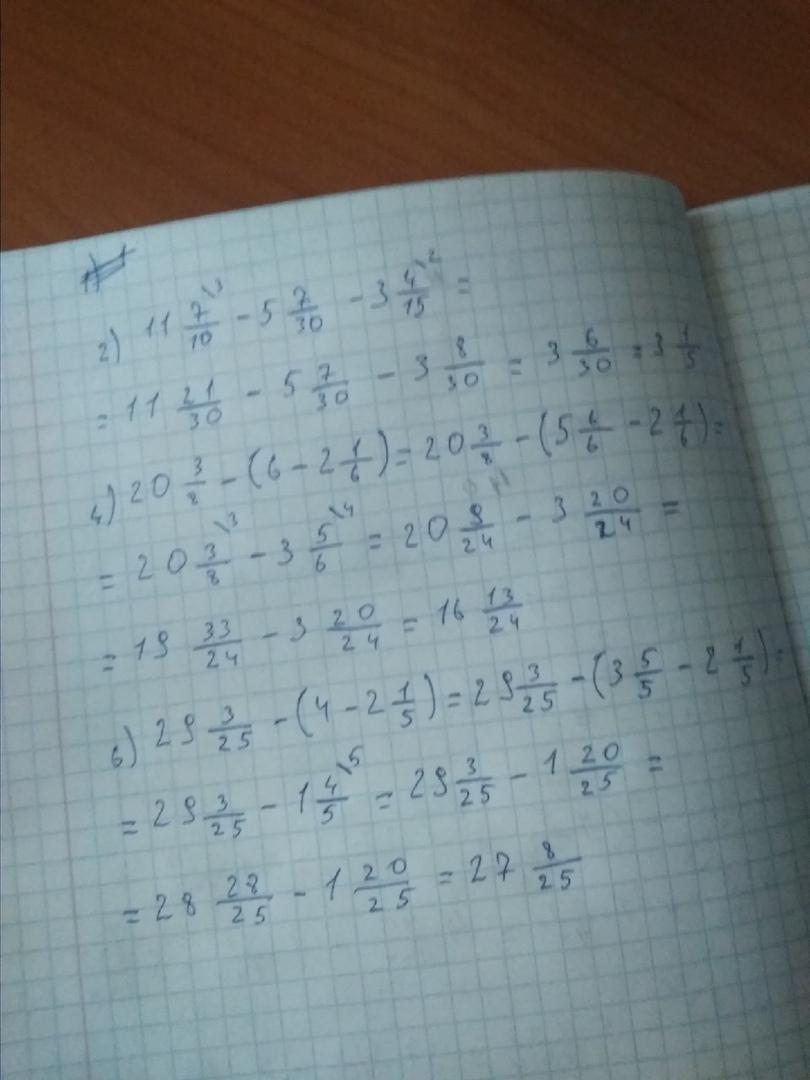 2) 11 7/10 \3 - 5 7/30 - 3 4/15 \2 =
= 11 21/30 - 5 7/30 - 3 8/30 = 3 6/30 = 3 1/5
4) 20 3/8 - (6 - 2 1/6) = 20 3/8 - (5 6/6 - 2 1/6) =
= 20 3/8 \3 - 3 5/6 \4 = 20 9/24 - 3 20/24 =
= 19 33/24 - 3 20/24 = 16 13/24
6) 29 3/25 - (4 - 2 1/5) = 29 3/25 - (3 5/5 - 2 1/5) =
= 29 3/25 - 1 4/5 \5 = 29 3/25 - 1 20/25 =
= 28 28/25 - 1 20/25 = 27 8/25